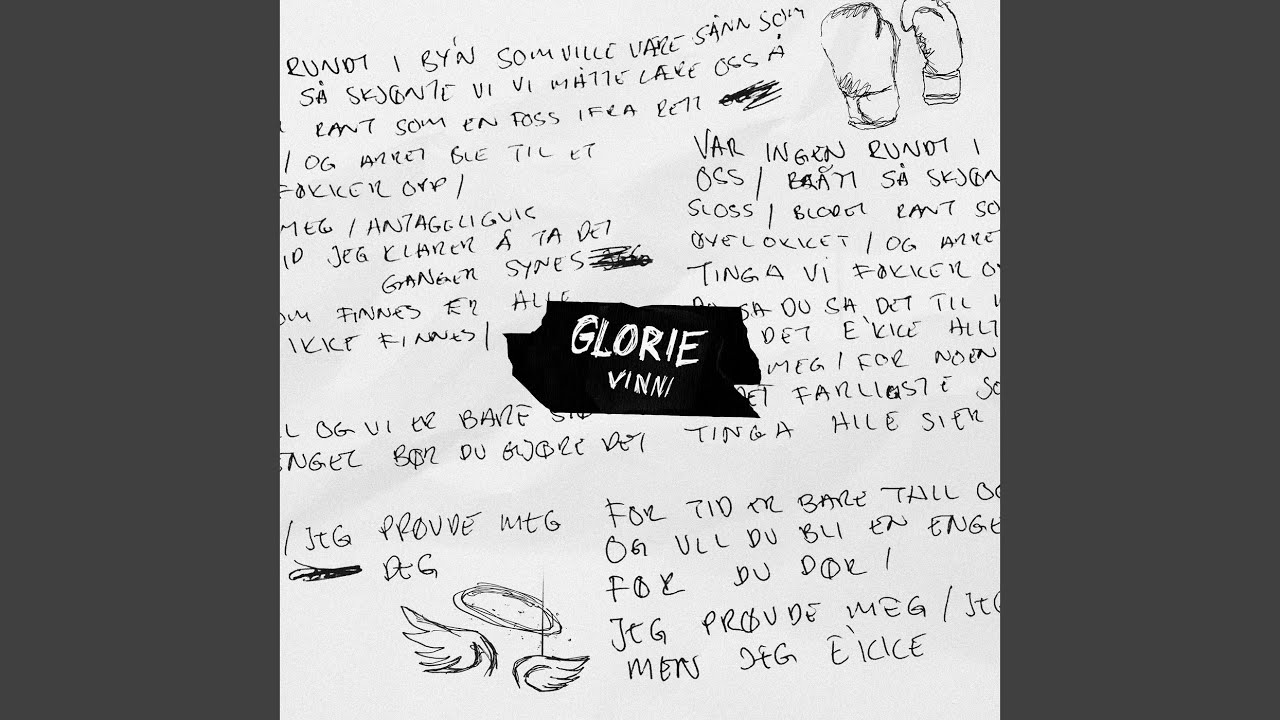 RUNDT I BY'N SOM VILLE VÆRE SÅNN SOM
SÅ SKJØNTE VI VI MÅTTE LÆRE OSS Å
RANT SOM EN FOSS IFRA RETT
/ OG ARRET BLE TIL ET
FØKKER OPP /
MEG / ANTAGELIGVIS
ID JEG KLARER Å TA DET
GANGER SYNES
OM FINNES ER ALLE
IKKE FINNES /
L OG VI ER BARE
ENGEL BØR DU GJØRE DET
/ JEG PRØVDE MEG
DEG
VAR INGEN RUNDT I
OSS / BRÅTT SÅ SKJØN
SLOSS / BLODET RANT SO
ØYELOKKET / OG ARRE
TINGA VI FØKKER OP
SA DU SA DET TIL
DET E'KKE ALLT
MEG / FOR NOEN
DET FARLIGSTE SO
TINGA ALLE SIER
FOR TID ER BARE TALL OG
OG VILL DU BLI EN ENGE
FØR DU DØR /
JEG PRØVDE MEG / JEG
MEN JEG E'KKE
GLORIE
VINNI